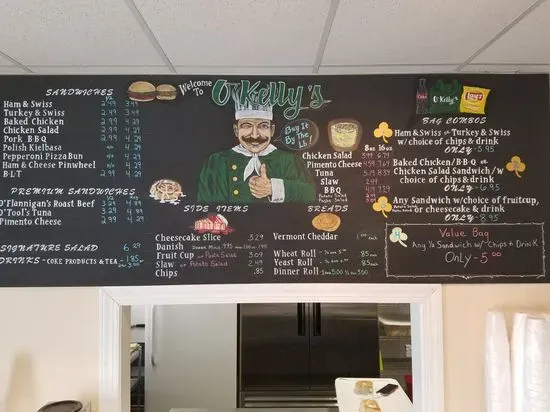 Welcome To O'Kelly's
SANDWICHES
Ham & Swiss 2.49 3.49
Turkey & Swiss 2.99 3.99
Baked Chicken 2.99 4.29
Chicken Salad 2.99 4.29
Pork BBQ 2.99 4.29
Polish Kielbasa 4.29
Pepperoni Pizza Bun 4.29
Ham & Cheese Pinwheel 4.29
B·L·T 4.29
PREMIUM SANDWICHES
O'Flannigan's Roast Beef
O'Tool's Tuna
Pimento Cheese
SIGNATURE SALAD 6.29
DRINKS - COKE PRODUCTS & TEA
Buy It By The Lb!
8oz 16oz
Chicken Salad
Pimento Cheese
Tuna
Slaw
BBQ
Potato Salad
Pasta Salad
SIDE ITEMS
Cheesecake Slice 3.29
Danish
Fruit Cup or Pasta Salad 3.09
Slaw or Potato Salad 2.49
Chips .85
BREADS
Vermont Cheddar
Wheat Roll .85 ea
Yeast Roll
Dinner Roll
Coke
O'Kelly
Lay's
BAG COMBOS
Ham & Swiss or Turkey & Swiss
w/choice of chips & drink
ONLY - 5.95
Baked Chicken/B·B·Q or
Chicken Salad Sandwich/w
choice of chips & drink
ONLY - 6.95
Any Sandwich w/choice of fruitcup,
or cheesecake & drink
ONLY - 8.95
Value Bag
Any ½ Sandwich w/ Chips & Drink
Only - 5.00